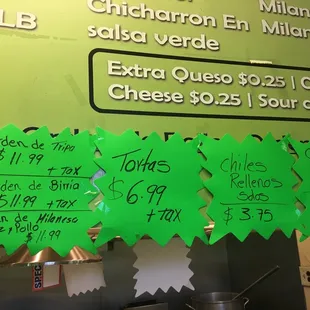 LB
Chicharron En
salsa verde
Milan
Milan
Extra Queso $0.25 | C
Cheese $0.25 | Sour c
den de Tripa
$11.99
+ TAX
den de Birria
$11.99 + TAX
n de Milanesa
Pollo $11.99
Tortas
$6.99
+ TAX
Chiles
Rellenos
Sdos
$3.75
SPEC